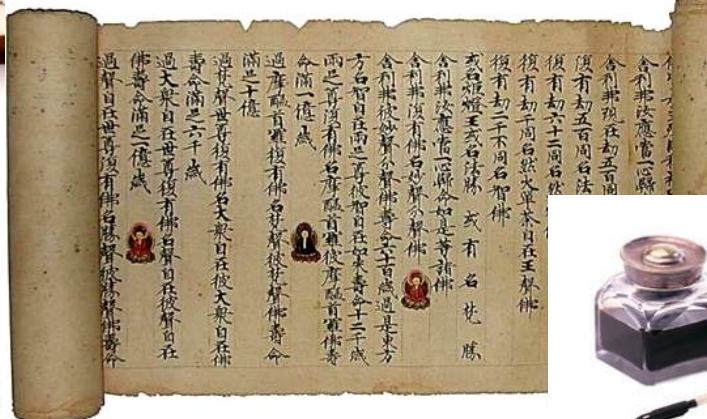 舍利弗汝應當一心歸
舍利弗現在劫五百同
復有劫五百同名法
復有劫六十二同名然
復有劫千同名然火單荼自在王聲佛
復有劫二千不同名智佛
或名炬燈王或名法勝 或有名梵勝
舍利弗汝應當一心歸命如是等諸佛
舍利弗復有佛名妙聲分聲佛
舍利弗彼妙聲分聲佛壽命六十百歲過是東方
方名智自在兩足尊彼智自在如來壽命十二千歲
兩足之尊復有佛名摩醯首羅彼摩醯首羅佛壽
命滿一億歲
過摩醯首羅復有佛名梵聲彼梵聲佛壽命
滿足十億
過梵聲世尊復有佛名大衆自在彼大衆自在佛
壽命滿足六千歲
過大衆自在世尊復有佛名聲自在彼聲自在
佛壽命滿足一億歲
過聲自在世尊復有佛名勝聲彼勝聲佛壽命